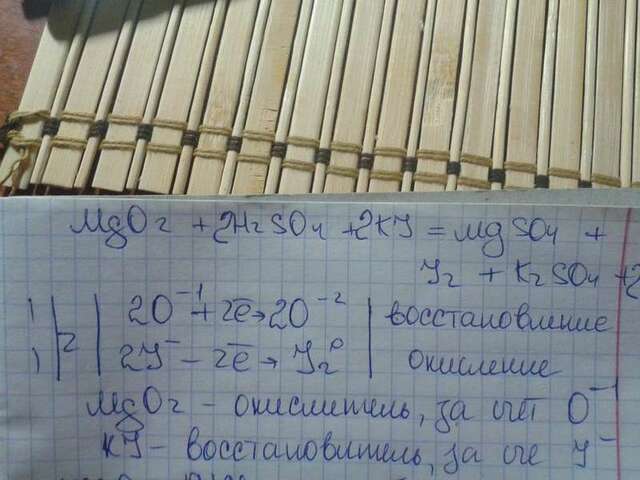 MgO2 + 2H2SO4 + 2KJ = MgSO4 +
J2 + K2SO4 + 2
1 | 2 | 2O⁻¹ + 2ē → 2O⁻² | восстановление
1 | 2J⁻ − 2ē → J2⁰ | окисление
MgO2 – окислитель, за счёт O⁻¹
KJ – восстановитель, за сче J⁻